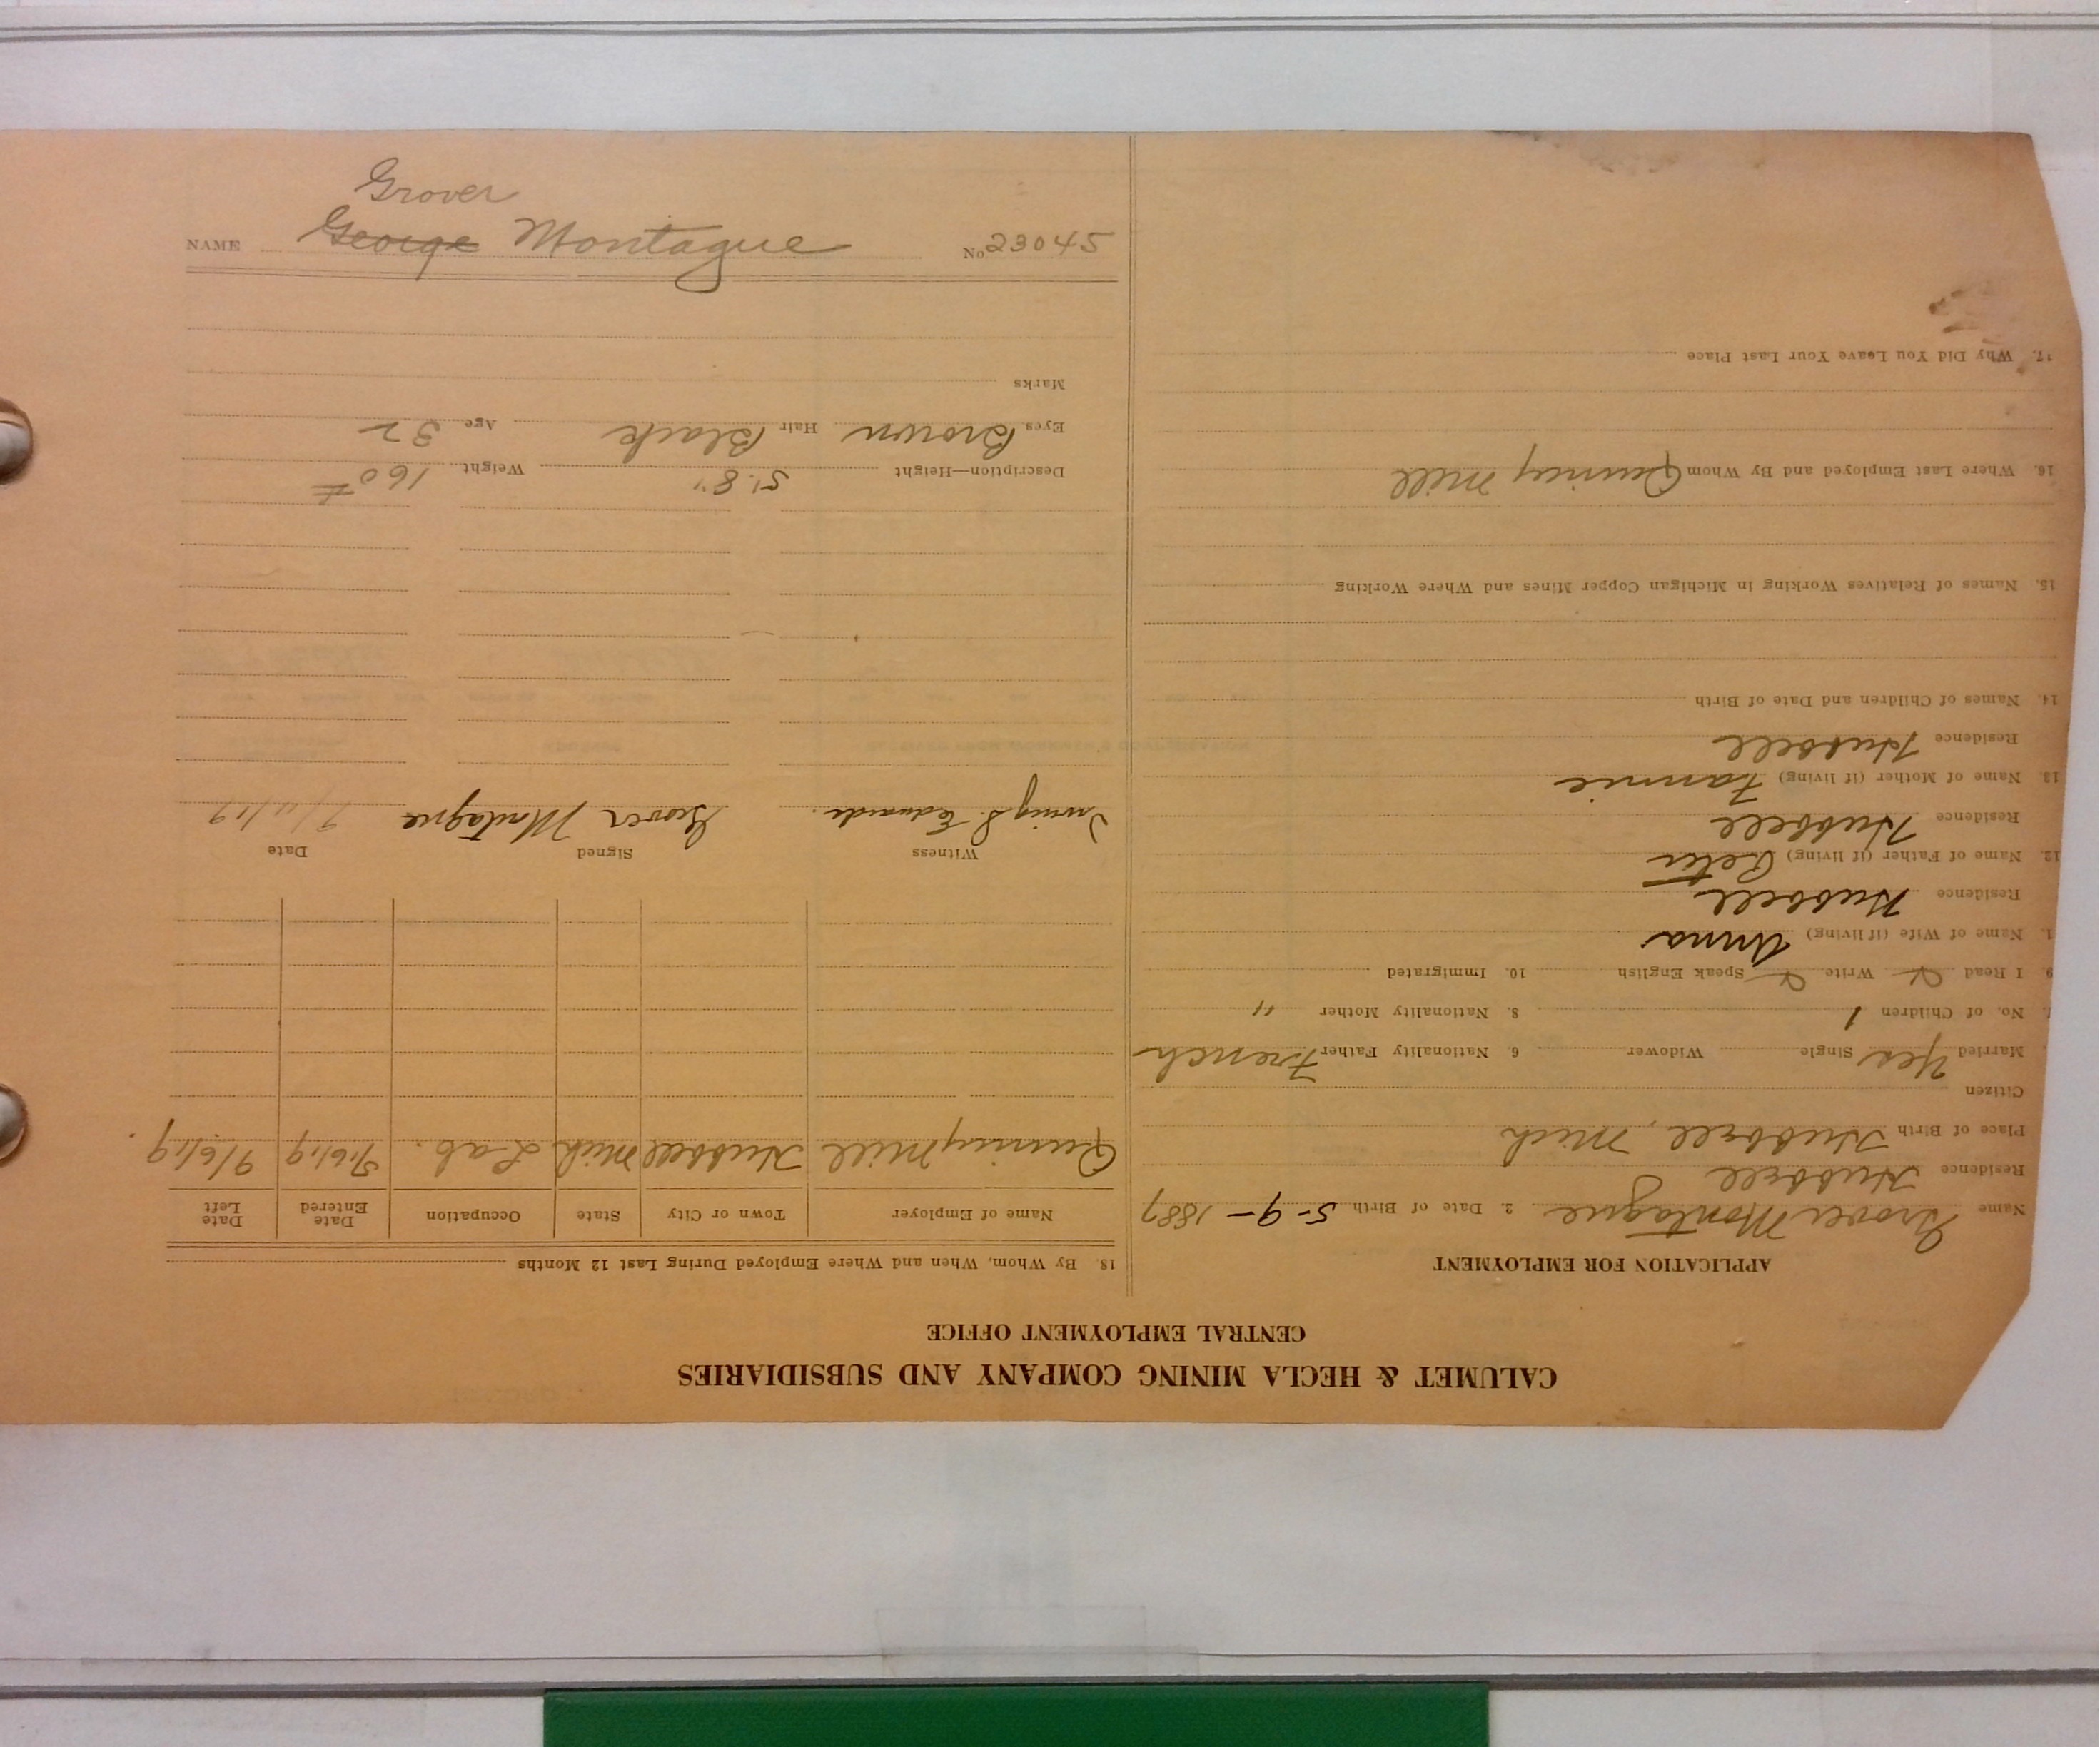 CALUMET & HECLA MINING COMPANY AND SUBSIDIARIES
CENTRAL EMPLOYMENT OFFICE
APPLICATION FOR EMPLOYMENT
Name Grover Montague 2. Date of Birth 5-9-1887
Residence Hubbell
Place of Birth Hubbell, Mich
Citizen
Married Yes Single Widower 6. Nationality Father French
No. of Children 1 8. Nationality Mother "
9. I Read Write Speak English 10. Immigrated
1. Name of Wife (if living) Anna
Residence Hubbell
12. Name of Father (if living) Peter
Residence Hubbell
13. Name of Mother (if living) Fannie
Residence Hubbell
14. Names of Children and Date of Birth
15. Names of Relatives Working in Michigan Copper Mines and Where Working
16. Where Last Employed and By Whom Quincy Mill
17. Why Did You Leave Your Last Place
18. By Whom, When and Where Employed During Last 12 Months
Name of Employer Town or City State Occupation Date Entered Date Left
Quincy Mill Hubbell Mich Lab. 9/6/19
Witness Signed Date
Irving S Edwards. Grover Montague
Description—Height 5'.8" Weight 160#
Eyes Brown Hair Black Age 32
Marks
Grover
NAME George Montague No 23045